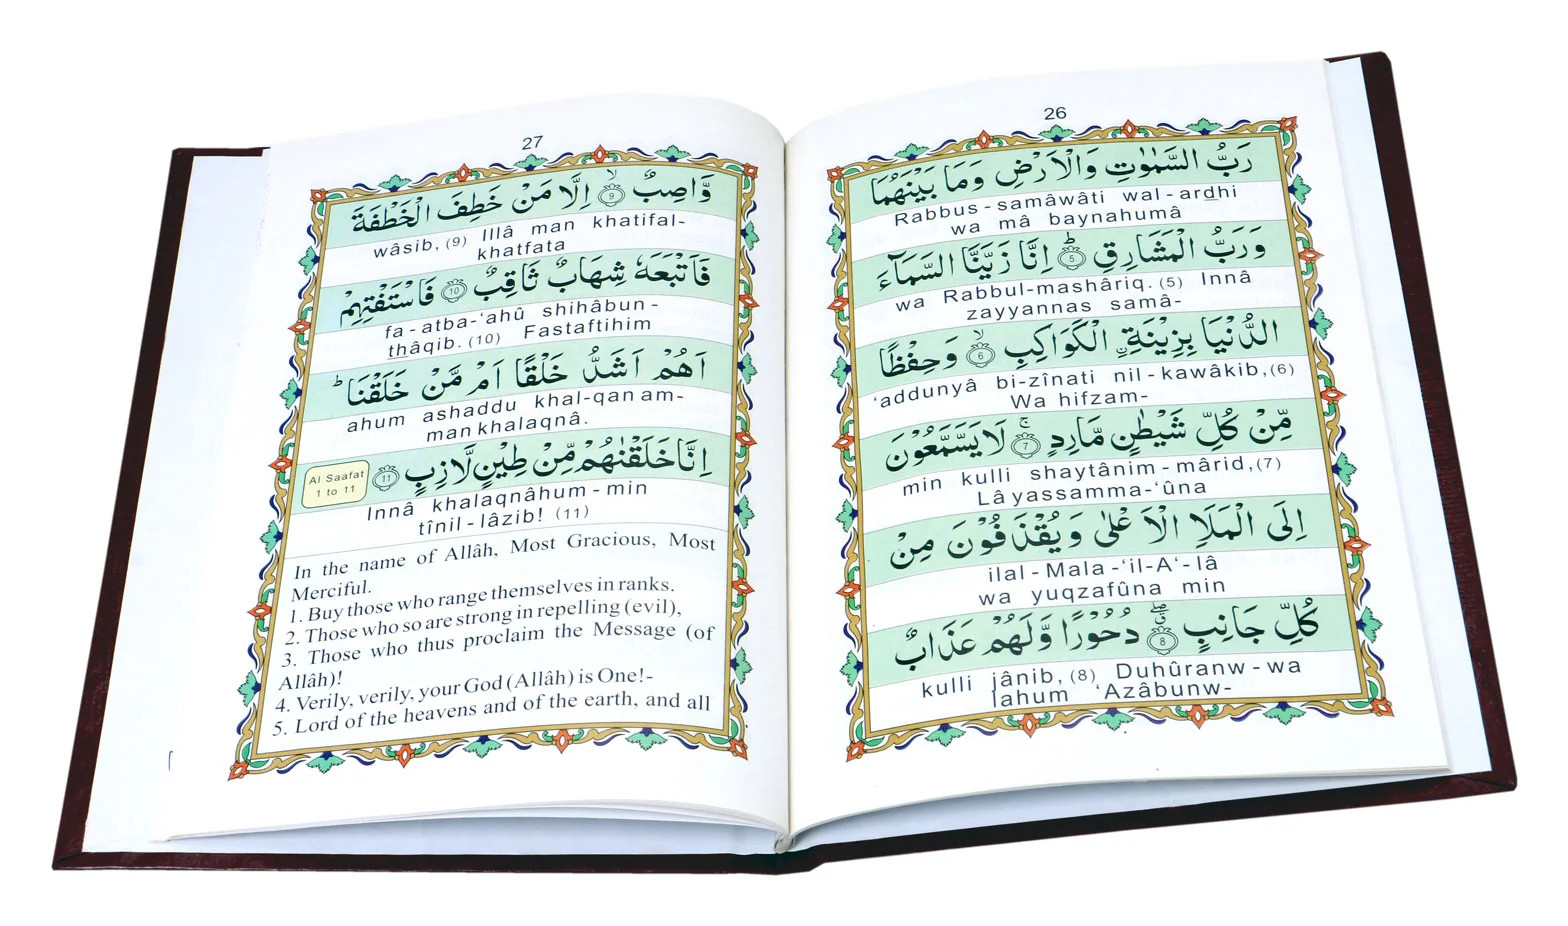 26
رَبُّ السَّمٰوٰتِ وَالْاَرْضِ وَمَا بَيْنَهُمَا
Rabbus-samâwâti wal-ardhi
wa mâ baynahumâ
وَرَبُّ الْمَشَارِقِ ؕ 5 اِنَّا زَيَّنَّا السَّمَآءَ
wa Rabbul-mashâriq. (5) Innâ
zayyannas samâ-
الدُّنْيَا بِزِيْنَةِ ۨ الْكَوَاكِبِ ۙ 6 وَحِفْظًا
‘addunyâ bi-zînati nil-kawâkib, (6)
Wa hifzam-
مِّنْ كُلِّ شَيْطٰنٍ مَّارِدٍ ۚ 7 لَا يَسَّمَّعُوْنَ
min kulli shaytânim-mârid, (7)
Lâ yassamma-‘ûna
اِلَى الْمَلَاِ الْاَعْلٰى وَيُقْذَفُوْنَ مِنْ
ilal-Mala-‘il-A‘-lâ
wa yuqzafûna min
كُلِّ جَانِبٍ ۖق 8 دُحُوْرًا وَّلَهُمْ عَذَابٌ
kulli jânib, (8) Duhûranw-wa
lahum ‘Azâbunw-
27
وَّاصِبٌ ۙ 9 اِلَّا مَنْ خَطِفَ الْخَطْفَةَ
wâsib, (9) Illâ man khatifal-
khatfata
فَاَتْبَعَهٗ شِهَابٌ ثَاقِبٌ 10 فَاسْتَفْتِهِمْ
fa-atba-‘ahû shihâbun-
thâqib. (10) Fastaftihim
اَهُمْ اَشَدُّ خَلْقًا اَمْ مَّنْ خَلَقْنَا ؕ
ahum ashaddu khal-qan am-
man khalaqnâ.
اِنَّا خَلَقْنٰهُمْ مِّنْ طِيْنٍ لَّازِبٍ 11
Al Saafat
1 to 11
Innâ khalaqnâhum-min
tînil-lâzib! (11)
In the name of Allâh, Most Gracious, Most
Merciful.
1. Buy those who range themselves in ranks.
2. Those who so are strong in repelling (evil),
3. Those who thus proclaim the Message (of
Allâh)!
4. Verily, verily, your God (Allâh) is One!-
5. Lord of the heavens and of the earth, and all